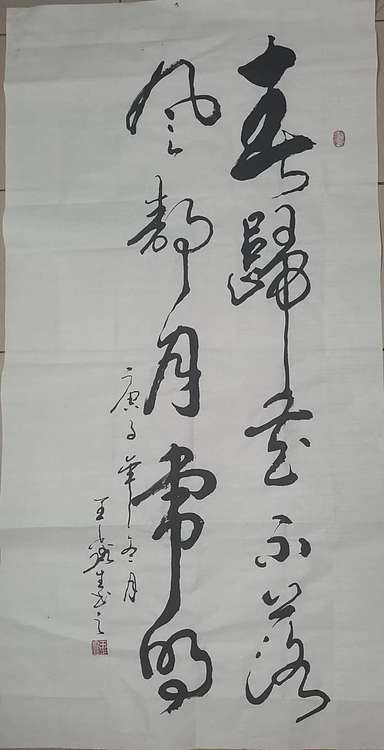 春歸花不落
風靜月常明
庚子年 月
王 生